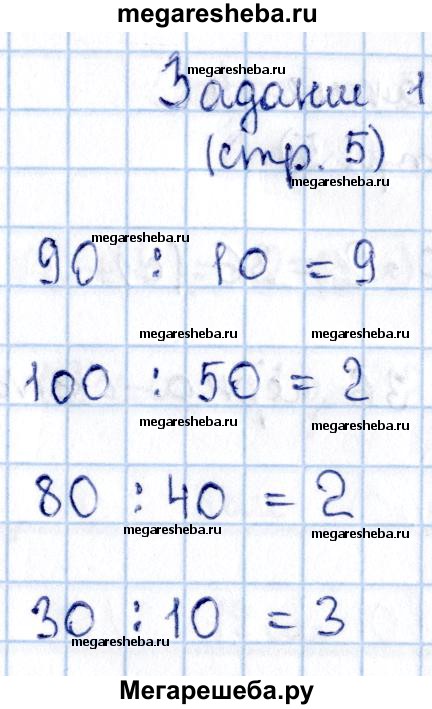 megaresheba.ru
megaresheba.ru
Задание 1
(стр. 5)
megaresheba.ru
megaresheba.ru
90 : 10 = 9
megaresheba.ru megaresheba.ru
100 : 50 = 2
megaresheba.ru megaresheba.ru
80 : 40 = 2
megaresheba.ru megaresheba.ru
30 : 10 = 3
megaresheba.ru
Мегарешеба.ру